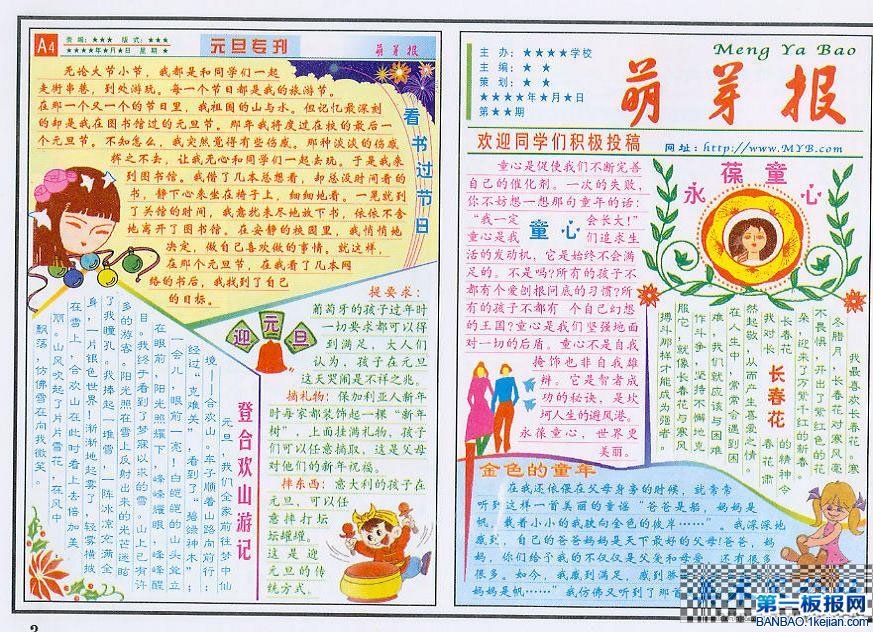 A4
责编：★★★ 版式：★★★
★★★★年★月★日 星期★
元旦专刊
萌芽报
看书过节日
无论大节小节，我都是和同学们一起
走街串巷，到处游玩。每一个节日都是我的旅游节。
在那一个又一个的节日里，我祖国的山与水。但记忆最深刻
的却是我在图书馆过的元旦节。那年我将度过在校的最后一
个元旦节。不知怎么，我突然觉得有些伤感。那种淡淡的伤感
挥之不去，让我无心和同学们一起去玩。于是我来
到图书馆。我借了几本总想看，却总没时间看的
书，静下心来坐在椅子上，细细地看。一晃就到
了关馆的时间，我意犹未尽地放下书，依依不舍
地离开了图书馆。在安静的校园里，我悄悄地
决定，做自己喜欢做的事情。就这样，
在那个元旦节，在我看了几本网
络的书后，我找到了自己
的目标。
迎元旦
提要求：
葡萄牙的孩子过年时
一切要求都可以得
到满足，大人们
认为，孩子在元旦
这天哭闹是不祥之兆。
摘礼物：保加利亚人新年
时每家都装饰起一棵“新年
树”，上面挂满礼物，孩子
们可以任意摘取，这是父母
对他们的新年祝福。
摔东西：意大利的孩子在
元旦，可以任
意摔打坛
坛罐罐。
这是迎
元旦的传
统方式。
登合欢山游记
元旦，我们全家前往梦中仙
境——合欢山。车子顺着山路向前行；
经过“克难关”，看到了“碧绿神木”；
一会儿，眼前一亮！白皑皑的山头耸立
在眼前，阳光照耀下，峰峰耀眼，峰峰醒
目。我终于看到了梦寐以求的雪。山上已有许
多的游客。阳光照在雪上反射出来的光芒迷眩
了我瞳孔。我捧起一堆雪，一阵冰凉充满全
身，一片银色世界！渐渐地起雾了，轻雾横披
在雪上，合欢山在此时看上去倍加美
丽。山风吹起了片片雪花，在风中
飘荡，仿佛雪在向我微笑。
主办：★★★★学校
主编：★ ★
策划：★ ★
★★★★年★月★日
第★★期
Meng Ya Bao
萌芽报
欢迎同学们积极投稿
网址：http://www.MYB.com
童心是促使我们不断完善
自己的催化剂。一次的失败，
你不妨想一想那句童年的话：
“我一定 会长大！”
童心是我 童心 们追求生
活的发动机，它是始终不会满
足的。不是吗？所有的孩子不
都有个爱刨根问底的习惯？所
有的孩子不都有 个自己幻想
的王国？童心是我们坚强地面
对一切的后盾。童心不是自我
掩饰也非自我雄
辩。它是智者成
功的秘诀，是坎
坷人生的避风港。
永葆童心，世界更
美丽。
永葆童心
长春花
我最喜欢长春花。寒
冬腊月，长春花对寒风毫
不畏惧，开出了紫红色的花
朵，迎来了万紫千红的新春。
长春花 的精神令
我对长 春花肃
然起敬，从而产生喜爱之情。
在人生中，常常会遇到困
难，我们就应该与困难
作斗争，坚持不懈地克
服它，就像长春花与寒风
搏斗那样才能成为强者。
金色的童年
在我还依偎在父母身旁的时候，就常常
听到这样一首美丽的童谣“爸爸是船，妈妈是
帆，载着小小的我驶向金色的彼岸……”。我深深地
感到，自己的爸爸妈妈是天下最好的父母！爸爸，妈
妈，你们给予我的不仅仅是父爱和母爱，还有很多
很多。如今，我感到满足，感到骄
妈妈是帆……”我仿佛又听到了那首
第一板报网
BANBAO.1kejian.com
2